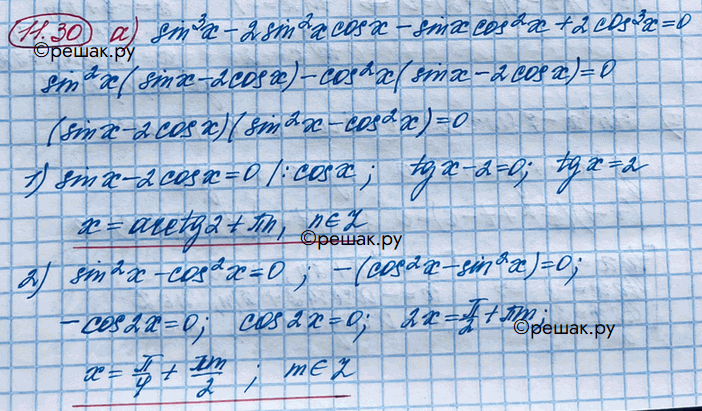 11.30 а) sin³x - 2sin²x cosx - sinx cos²x + 2cos³x = 0
©решак.ру
sin²x(sinx - 2cosx) - cos²x(sinx - 2cosx) = 0
(sinx - 2cosx)(sin²x - cos²x) = 0
1) sinx - 2cosx = 0 /: cosx ; tgx - 2 = 0; tgx = 2
x = arctg2 + πn, n ∈ Z
©решак.ру
2) sin²x - cos²x = 0 ; -(cos²x - sin²x) = 0;
-cos2x = 0; cos2x = 0; 2x = π/2 + πm;
©решак.ру
x = π/4 + πm/2 ; m ∈ Z